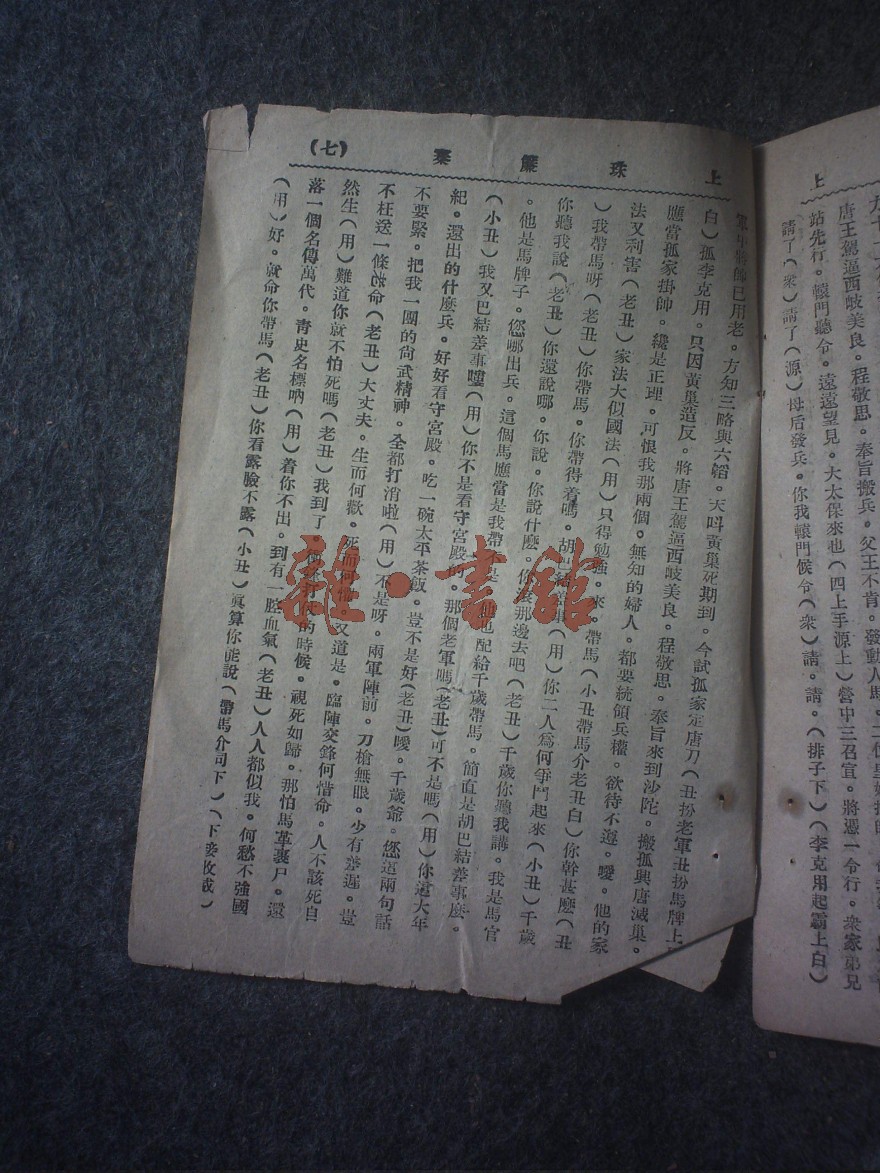 上
唐王駕逼西岐美良。程敬思。奉旨搬兵。父王不肯。發動人馬。
站先行。轅門聽令。遠遠望見。大太保來也(四上手源上)營中三召宣。將憑一令行。衆家弟兄
請了(衆)請了(源)母后發兵。你我轅門候令(衆)請。請。(排子下)(李克用起霸上白)
上 珠簾寨 (七)
軍中將帥已用老。方知三略與六韜。天叫黃巢死期到。今試孤家定唐刀(丑扮老軍丑扮馬牌上
白)孤李克用。只因黃巢造反。將唐王駕逼西岐美良。程敬思。奉旨來到沙陀。搬孤興唐滅巢。
應當孤家掛帥。纔是正理。可恨我那兩個。無知的婦人。都要統領兵權。欲待不遵。噯。他的家
法又利害(老丑)家法大似國法(用)只得勉強。來。帶馬(小丑帶馬介老丑白)你幹甚麽(丑
)我帶馬呀(老丑)你帶馬。你帶得着嗎。胡巴結差事(用)你二人爲何爭鬥起來(小丑)千歲
你聽我說(老丑)你還說哪。你說。你說什麽。你滾那邊去吧(老丑)千歲你聽我講。我是馬官
。他是馬牌子。您哪出兵。這個馬應當是我帶不是。他也配給千歲帶馬。簡直是胡巴結差事麽。
(小丑)我又巴結差事嘍(用)你不是看守宮殿的。那個老軍嗎(老丑)可不是嗎(用)你這大年
紀。還出的什麽兵。好好看守宮殿。吃一碗太平茶飯。豈不是好(老丑)噯。千歲爺。您這兩句話
不要緊。把我一團的尙武精神。全都打消啦(用)不是呀。兩軍陣前。刀槍無眼。少有差遲。豈
不枉送一條老命(老丑)大丈夫。生而何歡。死而何懼。又道是。臨陣交鋒何惜命。人不該死自
然生(用)難道你就不怕死嗎(老丑)我到了的時候。視死如歸。那怕馬革裹尸。還
落一個名傳萬代。靑史名標吶(用)着你不出。到有一腔血氣(老丑)人人都似我。何愁不強國
(用)好。就命你帶馬(老丑)你看露臉不露(小丑)眞算你能說(帶馬介同下)(下接收威)
雜·書館